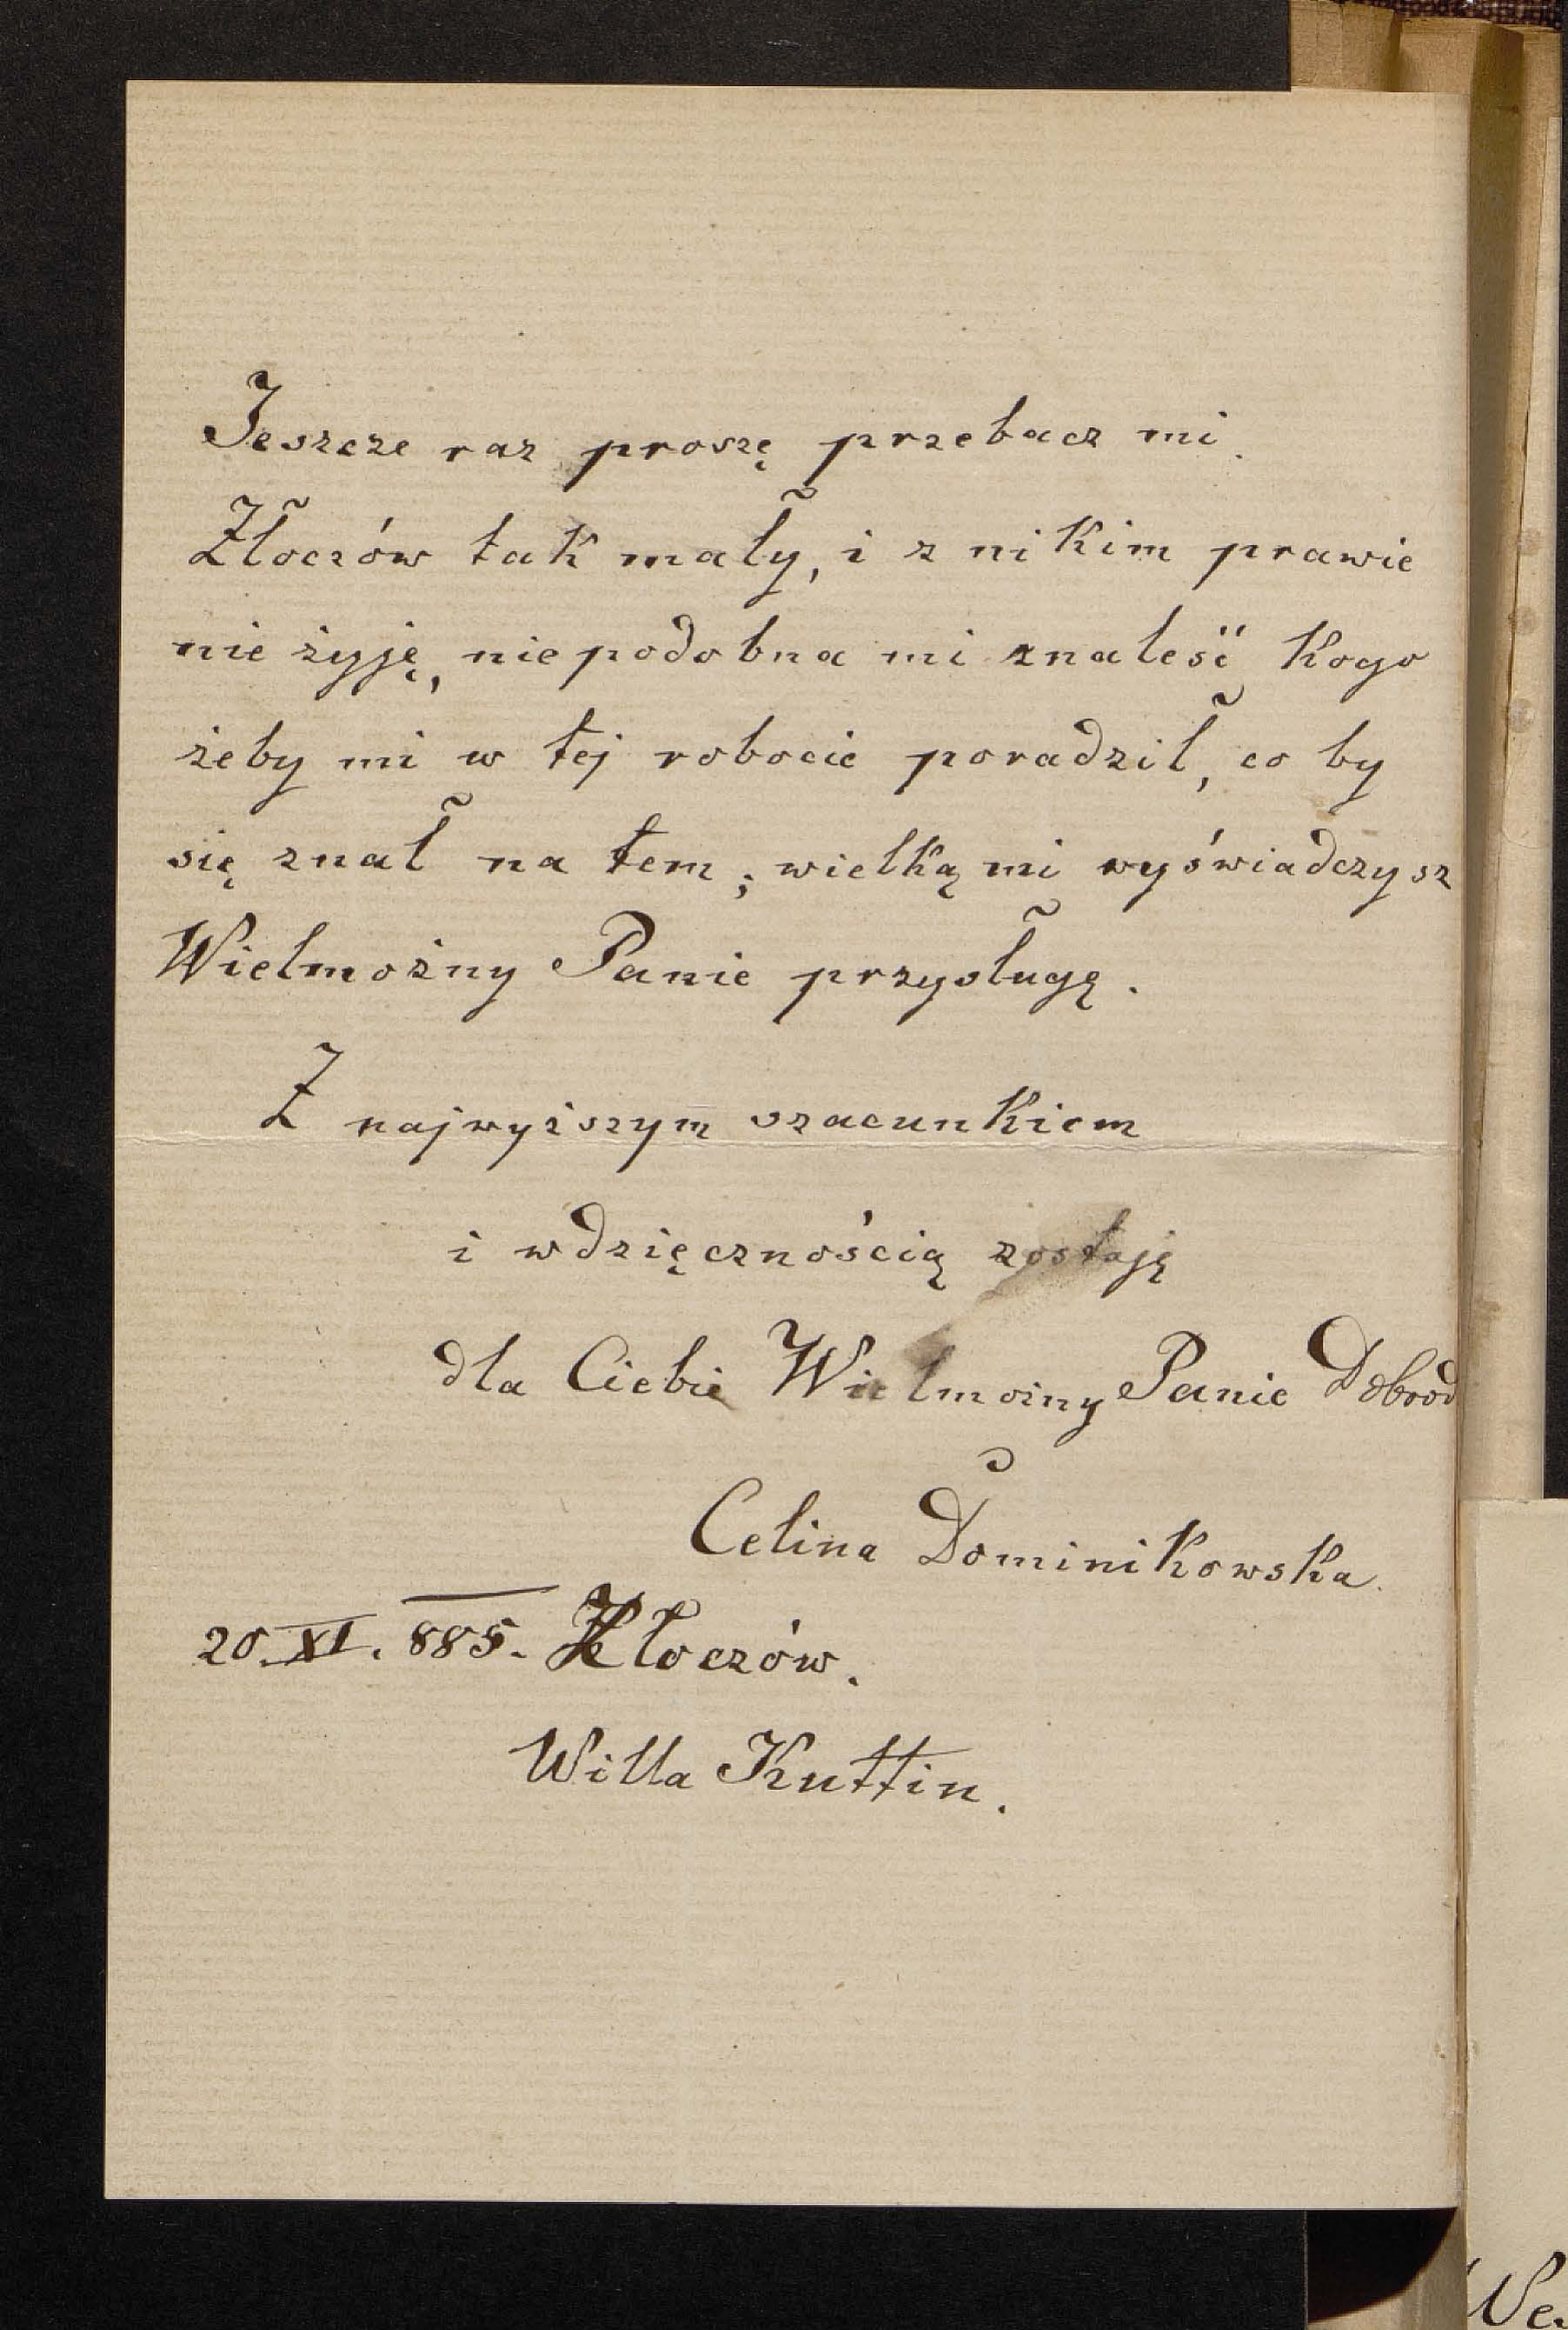 Jeszcze raz proszę przebacz mi.
Złoczów tak mały, i z nikim prawie
nie żyję, niepodobna mi znaleść kogo
żeby mi w tej robocie poradził, co by
się znał na tem; wielką mi wyświadczysz
Wielmożny Panie przysługę.
Z najwyższym szacunkiem
i wdzięcznością zostaję
dla Ciebie Wielmożny Panie Dobrod
Celina Dominikowska.
20. XI. 885. Złoczów.
Willa Kuttin.
We